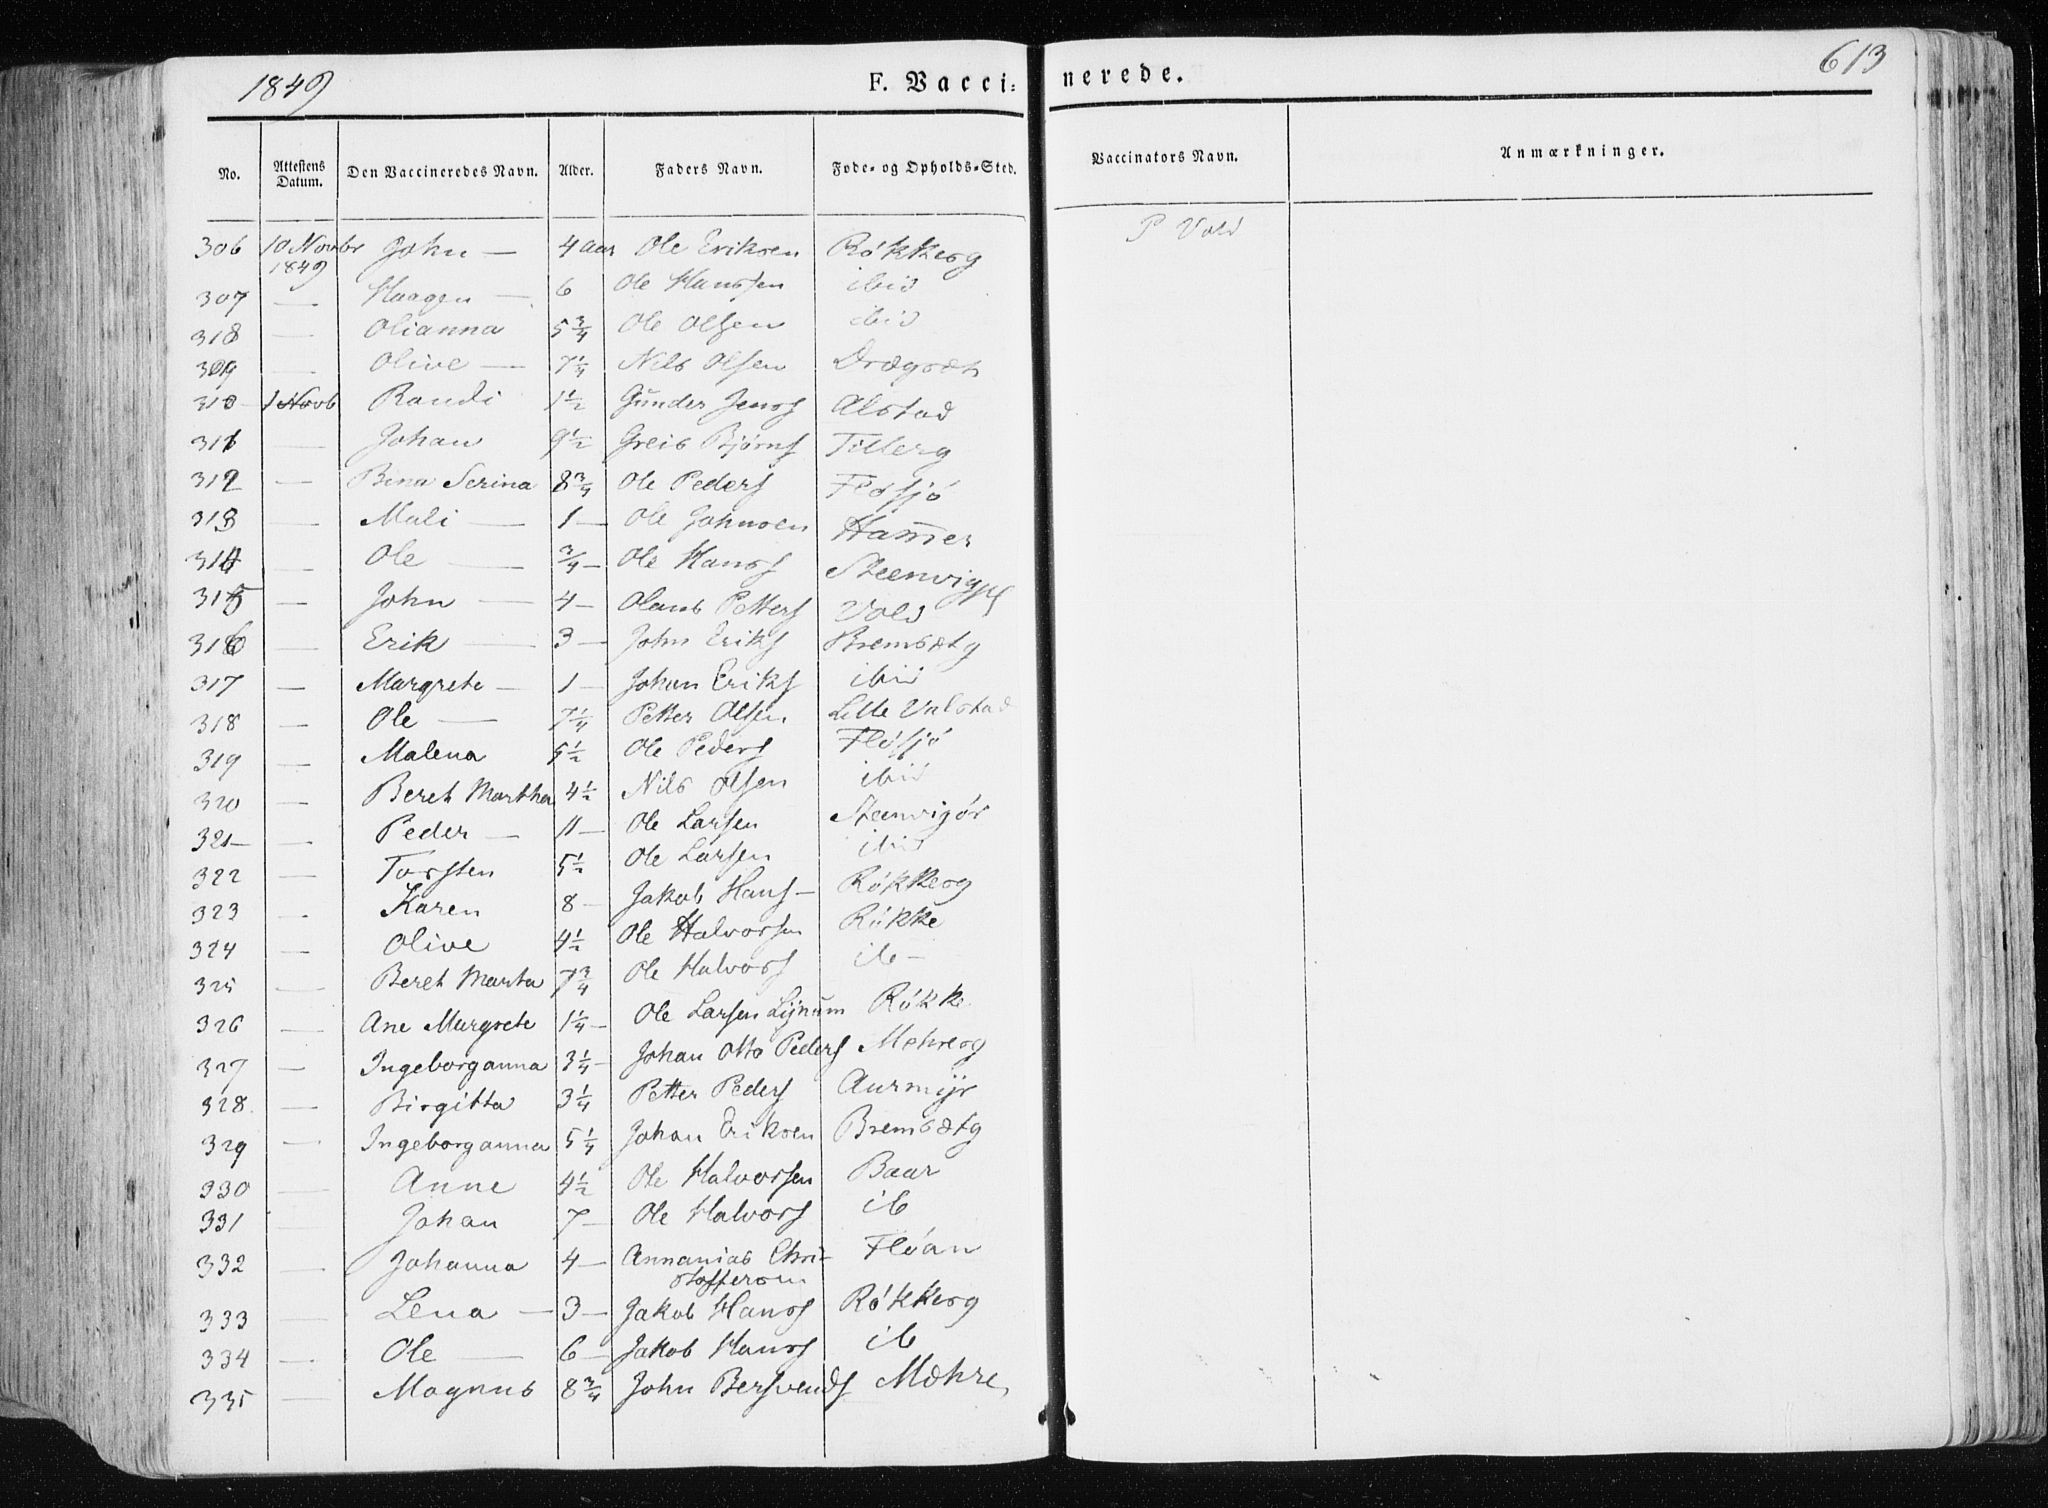 1849 F. Vacci= nerede. 613
No. Attestens Datum. Den Vaccineredes Navn. Alder. Faders Navn. Føde- og Opholds-Sted. Vaccinators Navn. Anmærkninger.
306 10 Novbr 1849 John — 4 aar Ole Eriksen Røkkerg P Vold
307 — Haagen — 6 Ole Hanssen ibid
318 — Olianna 5 3/4 Ole Olsen ibid
309 — Olive — 7 1/4 Nils Olsen
310 1 Novb Randi 1 1/2 Gunder Jensf Alstad
311 — Johan 9 1/2 Greis Bjørnsf Tillerg
312 — Bina Serina 8 3/4 Ole Pedersf Flosjø
313 — Mali — 1 — Ole Johnsen Ham̅er
314 — Ole — 3/4 — Ole Hansf
315 — John — 4 — Olaus Pettersf Vold
316 — Erik — 3 — John Eriksf Bremsætg
317 — Margrete — 1 — Johan Eriksf ibid
318 — Ole — 7 1/4 Petter Olsen Lille Valstad
319 — Malena 5 1/2 Ole Pedersf Fløsjø
320 — Beret Martha 4 1/2 Nils Olsen ibid
321 — Peder — 11 — Ole Larsen Steenvigør
322 — Torsten 5 1/2 Ole Larsen ibid
323 — Karen 8 — Jakob Hansf — Røkkerg
324 — Olive 4 1/2 Ole Halvorsen Røkke
325 — Beret Marta 7 3/4 Ole Halvorsf ib —
326 — Ane Margrete 1 1/4 — Ole Larsen Lynum Røkke
327 — Ingeborganna 3 1/4 — Johan Otto Pedersf Mehrerg
328 — Birgitta 3 1/4 Petter Pedersf Aurmyr
329 — Ingeborganna 5 1/4 Johan Eriksen Bremsætg
330 — Anne 4 1/2 Ole Halvorsen Baar
331 — Johan 7 — Ole Halvorsf ib
332 — Johanna 4 — Annanias Chri- Fløan
stoffersen
333 — Lena — 3 — Jakob Hansf Røkkerg
334 — Ole — 6 — Jakob Hansf ib
335 — Magnus 8 3/4 John Bersvendsf Mæhre